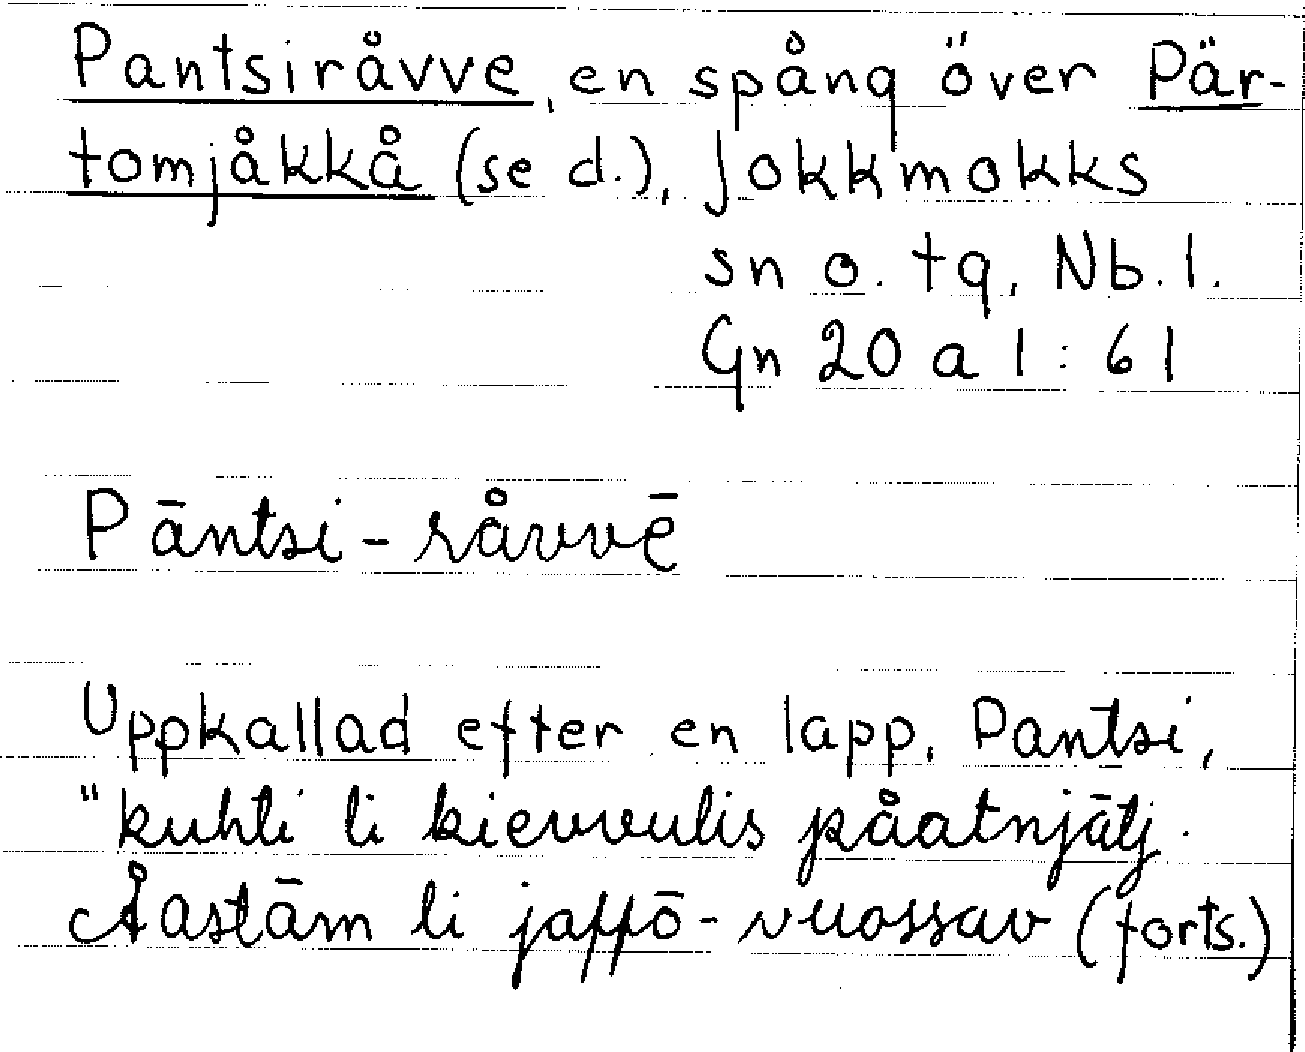 Pantsiråvve, en spång över Pär-
tomjåkkå (se d.), Jokkmokks
sn o. tg, Nb. l.
Gn 20 a 1 : 61
Pāntsi - råvvē
Uppkallad efter en lapp, Pantsi,
"kuhti li kievvulis påatnjātj.
Åastām li jaffō - vuossav (forts.)